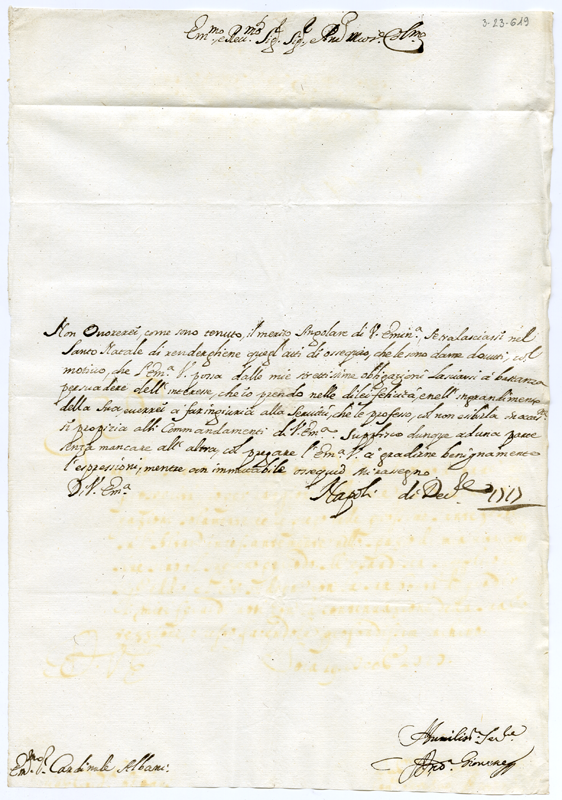 3-23-619
Em.mo e Reu.mo Sig.r Sig.r e Pad.
Non Onorerei, come sono tenuto, il merito singolare di V. Emin.a, se tralasciassi nel
Santo Natale di renderghiene quegl'atti di ossequio, che le sono da me douuti, col
motiuo, che l'Em.a V. possa dalle mie strettissime obligazioni lasciarsi à bastanza
persuadere dell' interesse, che io prendo nelle di lei felicità, e nell' ingrandimento
della Sua
farei ingiuria alla Seruitù, che le professo, col non esibirla
si propizia alli Commandamenti di V. Em.a Supplico dunque ad una parte
senza mancare all' altra, col pregare l'Em.a V. à gradirne benignamente
l'espressioni, mentre con immutabile ossequio mi rassegno
Di V. Em.a Napoli di Dec.e 1717
Humilis.o Ser.e
Em.mo S.r Cardinale Albani.